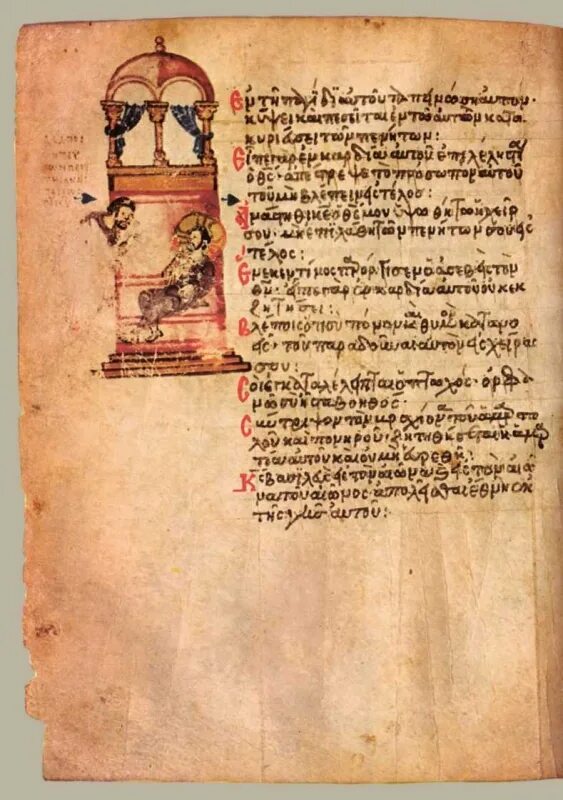 Ἐν τῇ παγίδι αὐτοῦ ταπεινώσει αὐτόν·
κύψει καὶ πεσεῖται ἐν τῶ αὐτὸν κατα
κυριεῦσαι τῶν πενήτων:
Εἶπε γὰρ ἐν καρδία αὐτοῦ ἐπιλέλησται
ὁ θς· ἀπέστρεψε τὸ πρόσωπον αὐτοῦ
τοῦ μὴ βλέπειν εἰς τέλος:
Ἀνάστηθι κε ὁ θς μου ὑψωθήτω ἡ χείρ
σου. μὴ ἐπιλάθη τῶν πενήτων σου εἰς
τέλος:
Ἕνεκεν τίνος παρώργισεν ὁ ἀσεβὴς τὸν
θν· εἶπε γὰρ ἐν καρδία αὐτοῦ οὐκ ἐκ
ζητήσει:
Βλέπεις ὅτι σὺ πόνον καὶ θυμὸν κατανο
εῖς· τοῦ παραδοῦναι αὐτοὺς εἰς χεῖράς
σου:
Σοὶ ἐγκαταλέλειπται ὁ πτωχός· ὀρφα
νῶ σὺ ἦσθα βοηθός·
Σύντριψον τὸν βραχίονα τοῦ ἁμαρτω
λοῦ καὶ πονηροῦ· ζητηθήσεται ἡ ἁμαρ
τία αὐτοῦ καὶ οὐ μὴ εὑρεθῆ:
Κς βασιλεύσει εἰς τὸν αἰῶνα καὶ εἰς τὸν αἰῶ
να τοῦ αἰῶνος· ἀπολεῖσθαι ἔθνη ἐκ
τῆς γῆς αὐτοῦ: